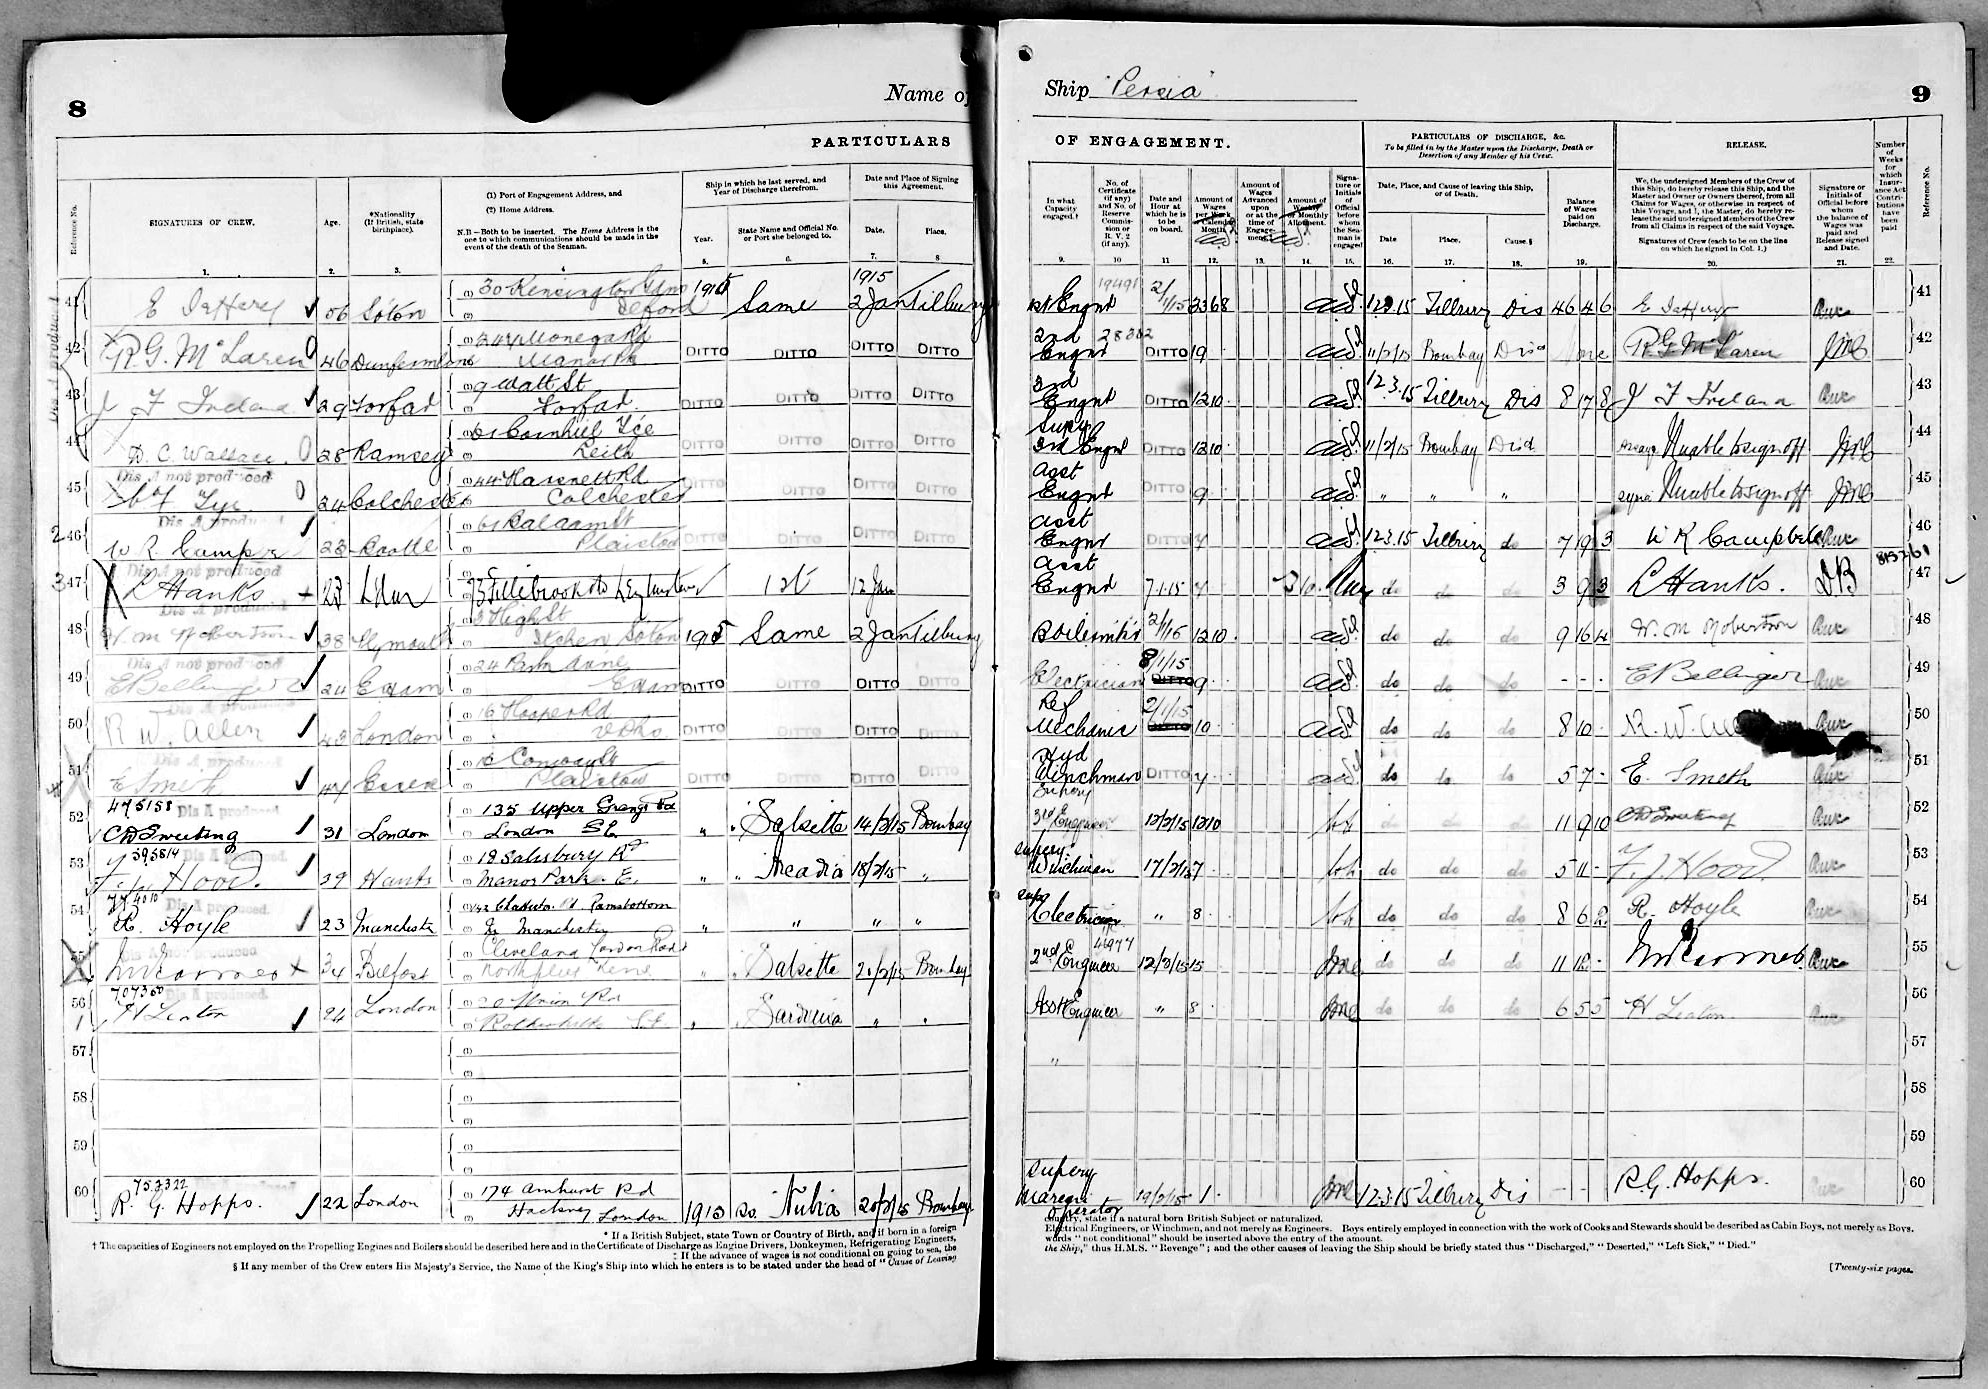 8
Name of
PARTICULARS
Reference No.
SIGNATURES OF CREW.
Age.
*Nationality
(If British, state
birthplace).
(1) Port of Engagement Address, and
(2) Home Address.
N.B—Both to be inserted. The Home Address is the
one to which communications should be made in the
event of the death of the Seaman.
Ship in which he last served, and
Year of Discharge therefrom.
Year.
State Name and Official No.
or Port she belonged to.
Date and Place of Signing
this Agreement.
Date.
Place.
1. 2. 3. 4 5. 6. 7. 8
1915
41 E Jaffery 56 Soton 30 Kensington Gdns 1915 Same 2 Jan Tilbury
Ilford
42 R. G. McLaren 46 Dunfermline 244 Monega Rd DITTO DITTO DITTO DITTO
Manor Pk
43 J F Ireland 29 Forfar 9 Watt St DITTO DITTO DITTO DITTO
Forfar
44 D. C. Wallace 28 Ramsey 61 Cornhill Tce DITTO DITTO DITTO DITTO
Leith
Dis A not produced
45 Tye 24 Colchester 44 Harsnett Rd DITTO DITTO DITTO DITTO
Colchester
Dis A produced
46 W R Campbell 23 Bootle 61 Balaam St DITTO DITTO DITTO
Plaistow
Dis A not produced
47 L Hanks 23 1st 12 Jan
Dis A produced
48 W. M Robertson 38 Plymouth 3 High St 1915 Same 2 Jan Tilbury
Itchen Soton
Dis A not produced
49 E Bellinger 24 Exam 24 Park Lane DITTO DITTO DITTO DITTO
Exam
Dis A produced
50 R W. Allen 43 London 16 Hooper Rd DITTO DITTO DITTO DITTO
Dis A produced
51 E Smith 47 Essex Conway St DITTO DITTO DITTO DITTO
Plaistow
475158 Dis A produced
52 C D Sweeting 31 London 135 Upper Grange Rd " Salsette 14/2/15 Bombay
London SE
593814 Dis A produced.
53 F. J. Hood. 39 Hants 18 Salisbury Rd " Arcadia 18/2/15 "
Manor Park. E.
Dis A produced.
54 R. Hoyle 23 Manchester Ramsbottom " " " "
Nr Manchester
Dis A not produced
55 34 Belfast Cleveland London Road " Salsette 20/2/15 Bombay
Northfleet Kent
707360 Dis A produced.
56 H Leaton 24 London 20 Union Rd " Sardinia " "
Rotherhithe SE
57
58
59
753322
60 R. G. Hopps. 22 London 174 Amhurst Rd 1915 Nubia 20/2/15 Bombay
Hackney London
* If a British Subject, state Town or Country of Birth, and if born in a foreign
† The capacities of Engineers not employed on the Propelling Engines and Boilers should be described here and in the Certificate of Discharge as Engine Drivers, Donkeymen, Refrigerating Engineers,
‡ If the advance of wages is not conditional on going to sea, the
§ If any member of the Crew enters His Majesty's Service, the Name of the King's Ship into which he enters is to be stated under the head of "Cause of Leaving
Ship "Persia"
9
OF ENGAGEMENT.
In what
Capacity
engaged.†
No. of
Certificate
(if any)
and No. of
Reserve
Commis-
sion or
R. V. 2
(if any).
Date and
Hour at
which he is
to be
on board.
Amount of
Wages
per Week
or Calendar
Month.
Amount of
Wages
Advanced
upon
or at the
time of
Engage-
ment.‡
Amount of
Weekly
or Monthly
Allotment.
Signa-
ture or
Initials of
Official
before
whom
the Sea-
man is
engaged
PARTICULARS OF DISCHARGE, &c.
To be filled in by the Master upon the Discharge, Death or
Desertion of any Member of his Crew.
Date, Place, and Cause of leaving this Ship,
or of Death.
Date
Place.
Cause.§
Balance
of Wages
paid on
Discharge.
RELEASE.
We, the undersigned Members of the Crew of
this Ship, do hereby release this Ship, and the
Master and Owner or Owners thereof, from all
Claims for Wages, or otherwise in respect of
this Voyage, and I, the Master, do hereby re-
lease the said undersigned Members of the Crew
from all Claims in respect of the said Voyage.
Signatures of Crew (each to be on the line
on which he signed in Col. 1.)
Signature or
Initials of
Official before
whom
the balance of
Wages was
paid and
Release signed
and Date.
Number
of
Weeks
for
which
Insur-
ance Act
Contribu-
tions
have
been
paid
Reference No.
9. 10 11 12. 13. 14. 15. 16. 17. 18. 19. 20. 21. 22.
1st Engnr 19491 2/1/15 23 6 8 12.3.15 Tilbury Dis 46 4 6 E Jaffery 41
2nd Engnr 28302 DITTO 19 11/2/15 Bombay Disd R G McLaren 42
3rd Engnr DITTO 12 10 12.3.15 Tilbury Dis 8 17 8 J F Ireland 43
Supy 3rd Engnr DITTO 12 10 11/2/15 Bombay Disd Unable to sign off 44
Asst Engnr DITTO 9 " " " Unable to sign off 45
Asst Engnr DITTO 7 12.3.15 Tilbury do 7 19 3 W R Campbell 46
Asst Engnr 7.1.15 7 do do do 3 9 3 L Hanks. DB 813261 47
Boilersmith 2/1/15 12 10 do do do 9 16 4 W. M Robertson 48
Electrician 8/1/15 DITTO 9 do do do - - - E Bellinger 49
Ref Mechanic 2/1/15 10 do do do 8 10 - R. W. 50
Hyd Winchman DITTO 7 do do do 5 7 - E. Smith 51
Supery 3rd Engineer 12/2/15 12 10 do do do 11 9 10 C D Sweeting 52
Supery. Winchman 17/2/15 7 do do do 5 11 - F. J Hood. 53
Supy Electrician " 8 do do do 8 6 2 R. Hoyle 54
2nd Engineer 46977 12/2/15 15 do do do 11 12 - 55
Asst Engineer " 8 do do do 6 5 5 H Leaton 56
" 57
58
59
Supery Marconi operator 19/2/15 1 - 12.3.15 Tilbury Dis - - R. G. Hopps. 60
country, state if a natural born British Subject or naturalized.
Electrical Engineers, or Winchmen, and not merely as Engineers. Boys entirely employed in connection with the work of Cooks and Stewards should be described as Cabin Boys, not merely as Boys.
words "not conditional" should be inserted above the entry of the amount.
the Ship," thus H.M.S. "Revenge"; and the other causes of leaving the Ship should be briefly stated thus "Discharged," "Deserted," "Left Sick," "Died."
[Twenty-six pages.